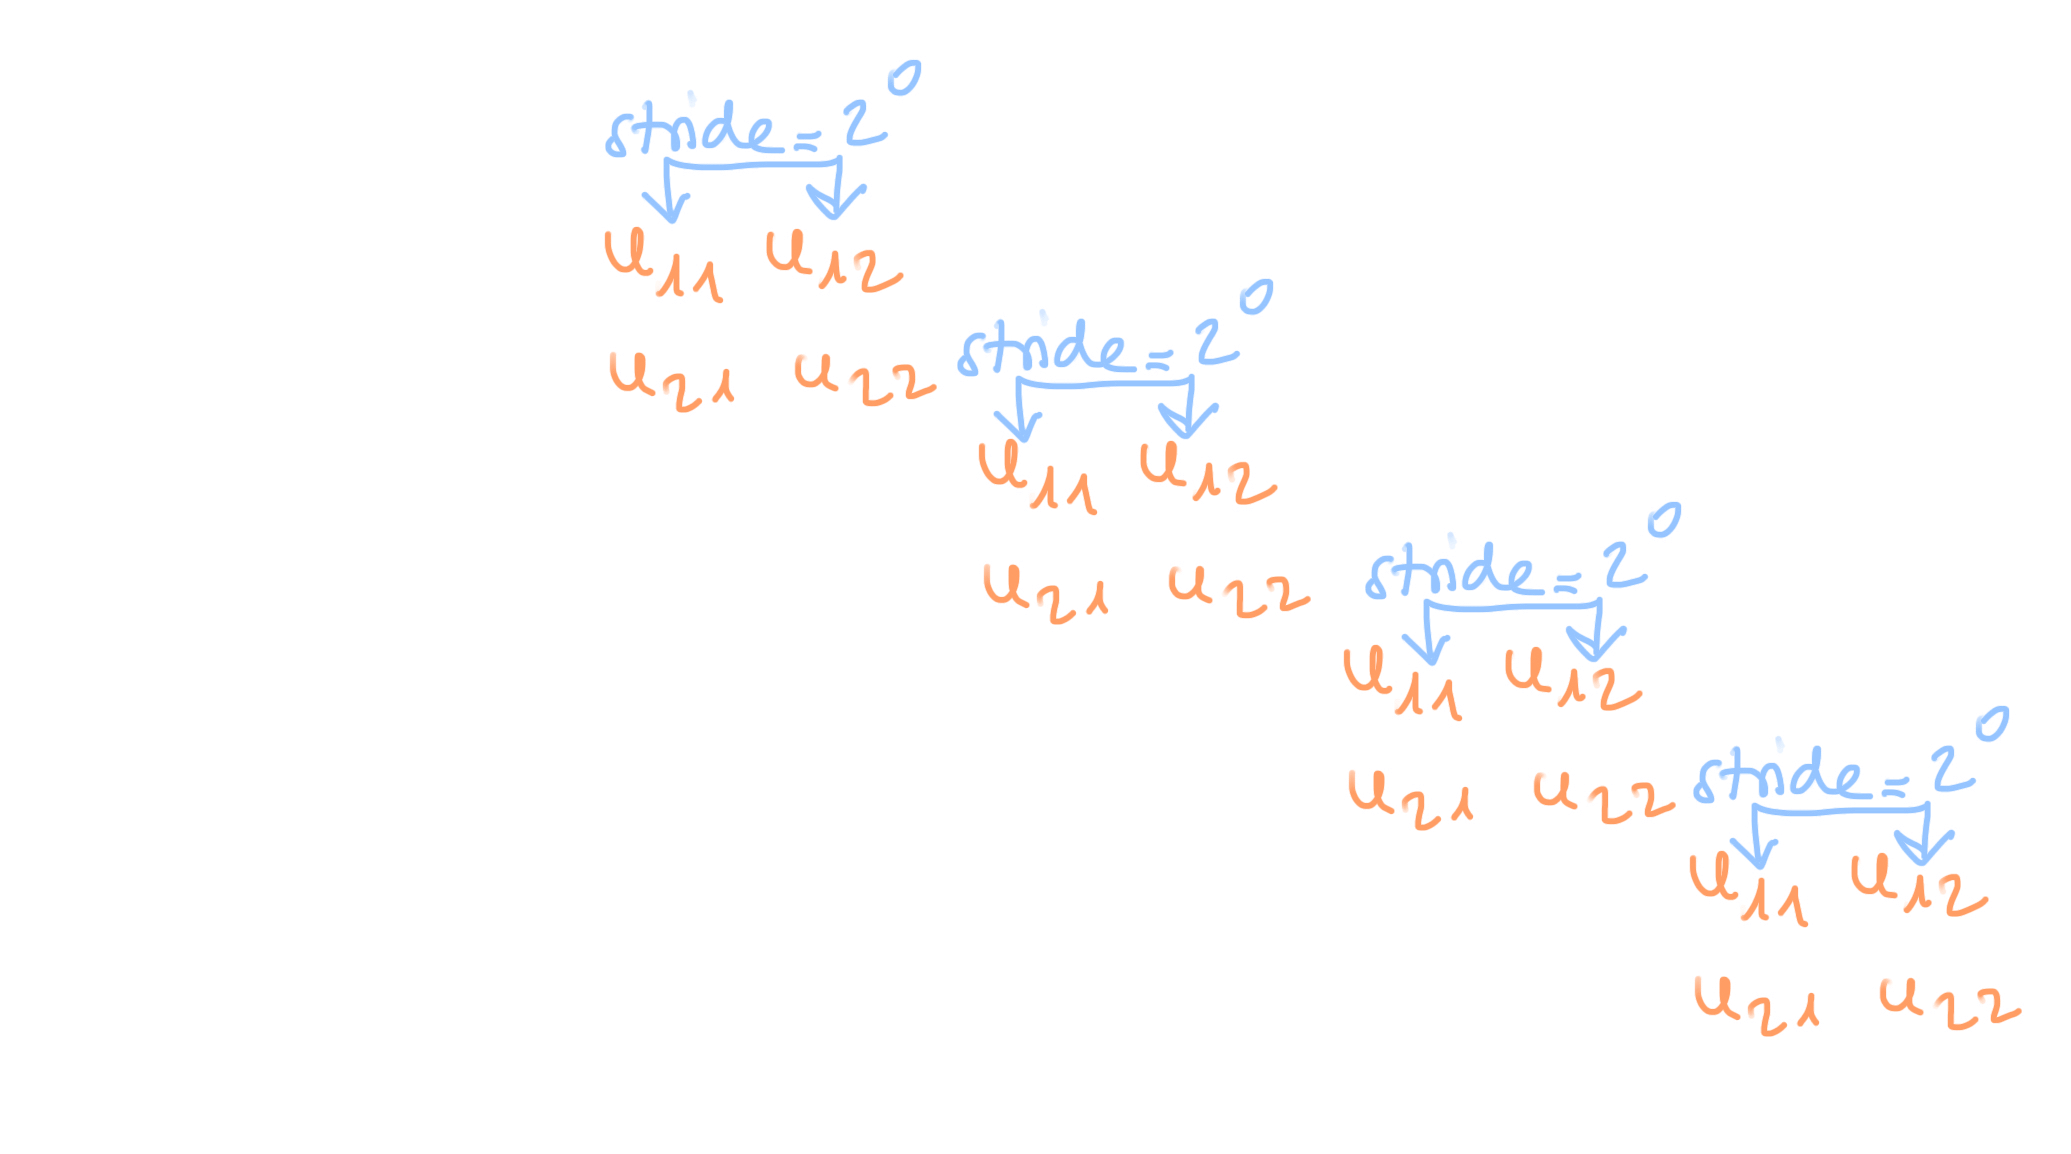 stride = 2^0
u_11 u_12
u_21 u_22
stride = 2^0
u_11 u_12
u_21 u_22
stride = 2^0
u_11 u_12
u_21 u_22
stride = 2^0
u_11 u_12
u_21 u_22